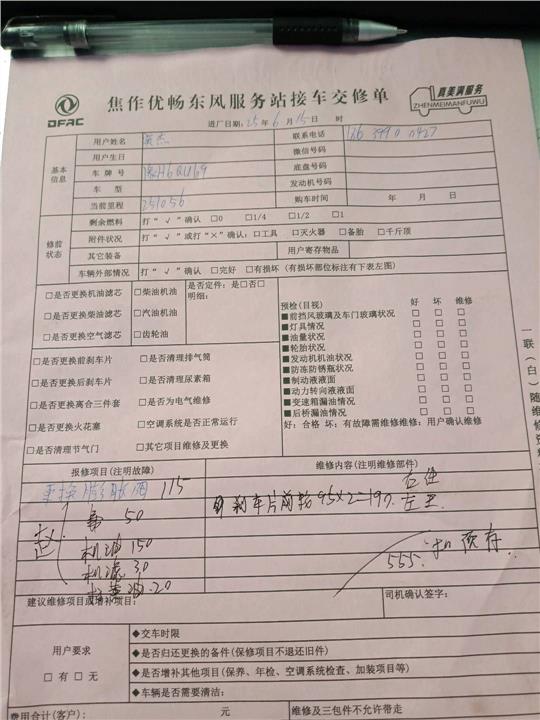 DFAC
焦作优畅东风服务站接车交修单
真美满服务
ZHENMEIMANFUWU
进厂日期: 25 年 6 月 15 日 时
基本信息
用户姓名
联系电话
用户生日 微信号码
车牌号 豫H6QU69 底盘号码
车型 发动机号码
当前里程 251056 购车时间 年 月 日
修前状态
剩余燃料 打"√"确认 □0 □1/4 □1/2 □1
附件状况 打"√"或打"×"确认:□工具 □灭火器 □备胎 □千斤顶
其它装备 用户寄存物品
车辆外部情况 打"√"确认 □完好 □有损坏(有损坏部位标注有下表左图)
□是否更换机油滤芯 □柴油机油
□是否更换柴油滤芯 □汽油机油
□是否更换空气滤芯 □齿轮油
是否定件:是□否□
明细:
□是否更换前刹车片 □是否清理排气筒
□是否更换后刹车片 □是否清理尿素箱
□是否更换离合三件套 □是否为电气维修
□是否更换火花塞 □空调系统是否正常运行
□是否清理节气门 □其它项目维修及更换
预检(目视) 好 坏 维修
■前挡风玻璃及车门玻璃状况 □ □ □
■灯具情况 □ □ □
■油量状况 □ □ □
■轮胎状况 □ □ □
■发动机机油状况 □ □ □
■防冻防锈瓶状况 □ □ □
■制动液液面 □ □ □
■动力转向液液面 □ □ □
■变速箱漏油情况 □ □ □
■后桥漏油情况 □ □ □
好:合格 坏:有故障需维修维修:用户确认维修
一联(白)随维修
报修项目(注明故障) 维修内容(注明维修部件)
更换膨胀阀 115
刹车片前轮 95×2=190
赵
50
机油 150
机滤 30
20
555.
建议维修项目或增补项目: 司机确认签字:
用户要求
□有 □无
◆交车时限
◆是否归还更换的备件(保修项目不退还旧件)
◆是否增补其他项目(保养、年检、空调系统检查、加装项目等)
◆车辆是否需要清洁:
费用合计(客户): 元 维修及三包件不允许带走